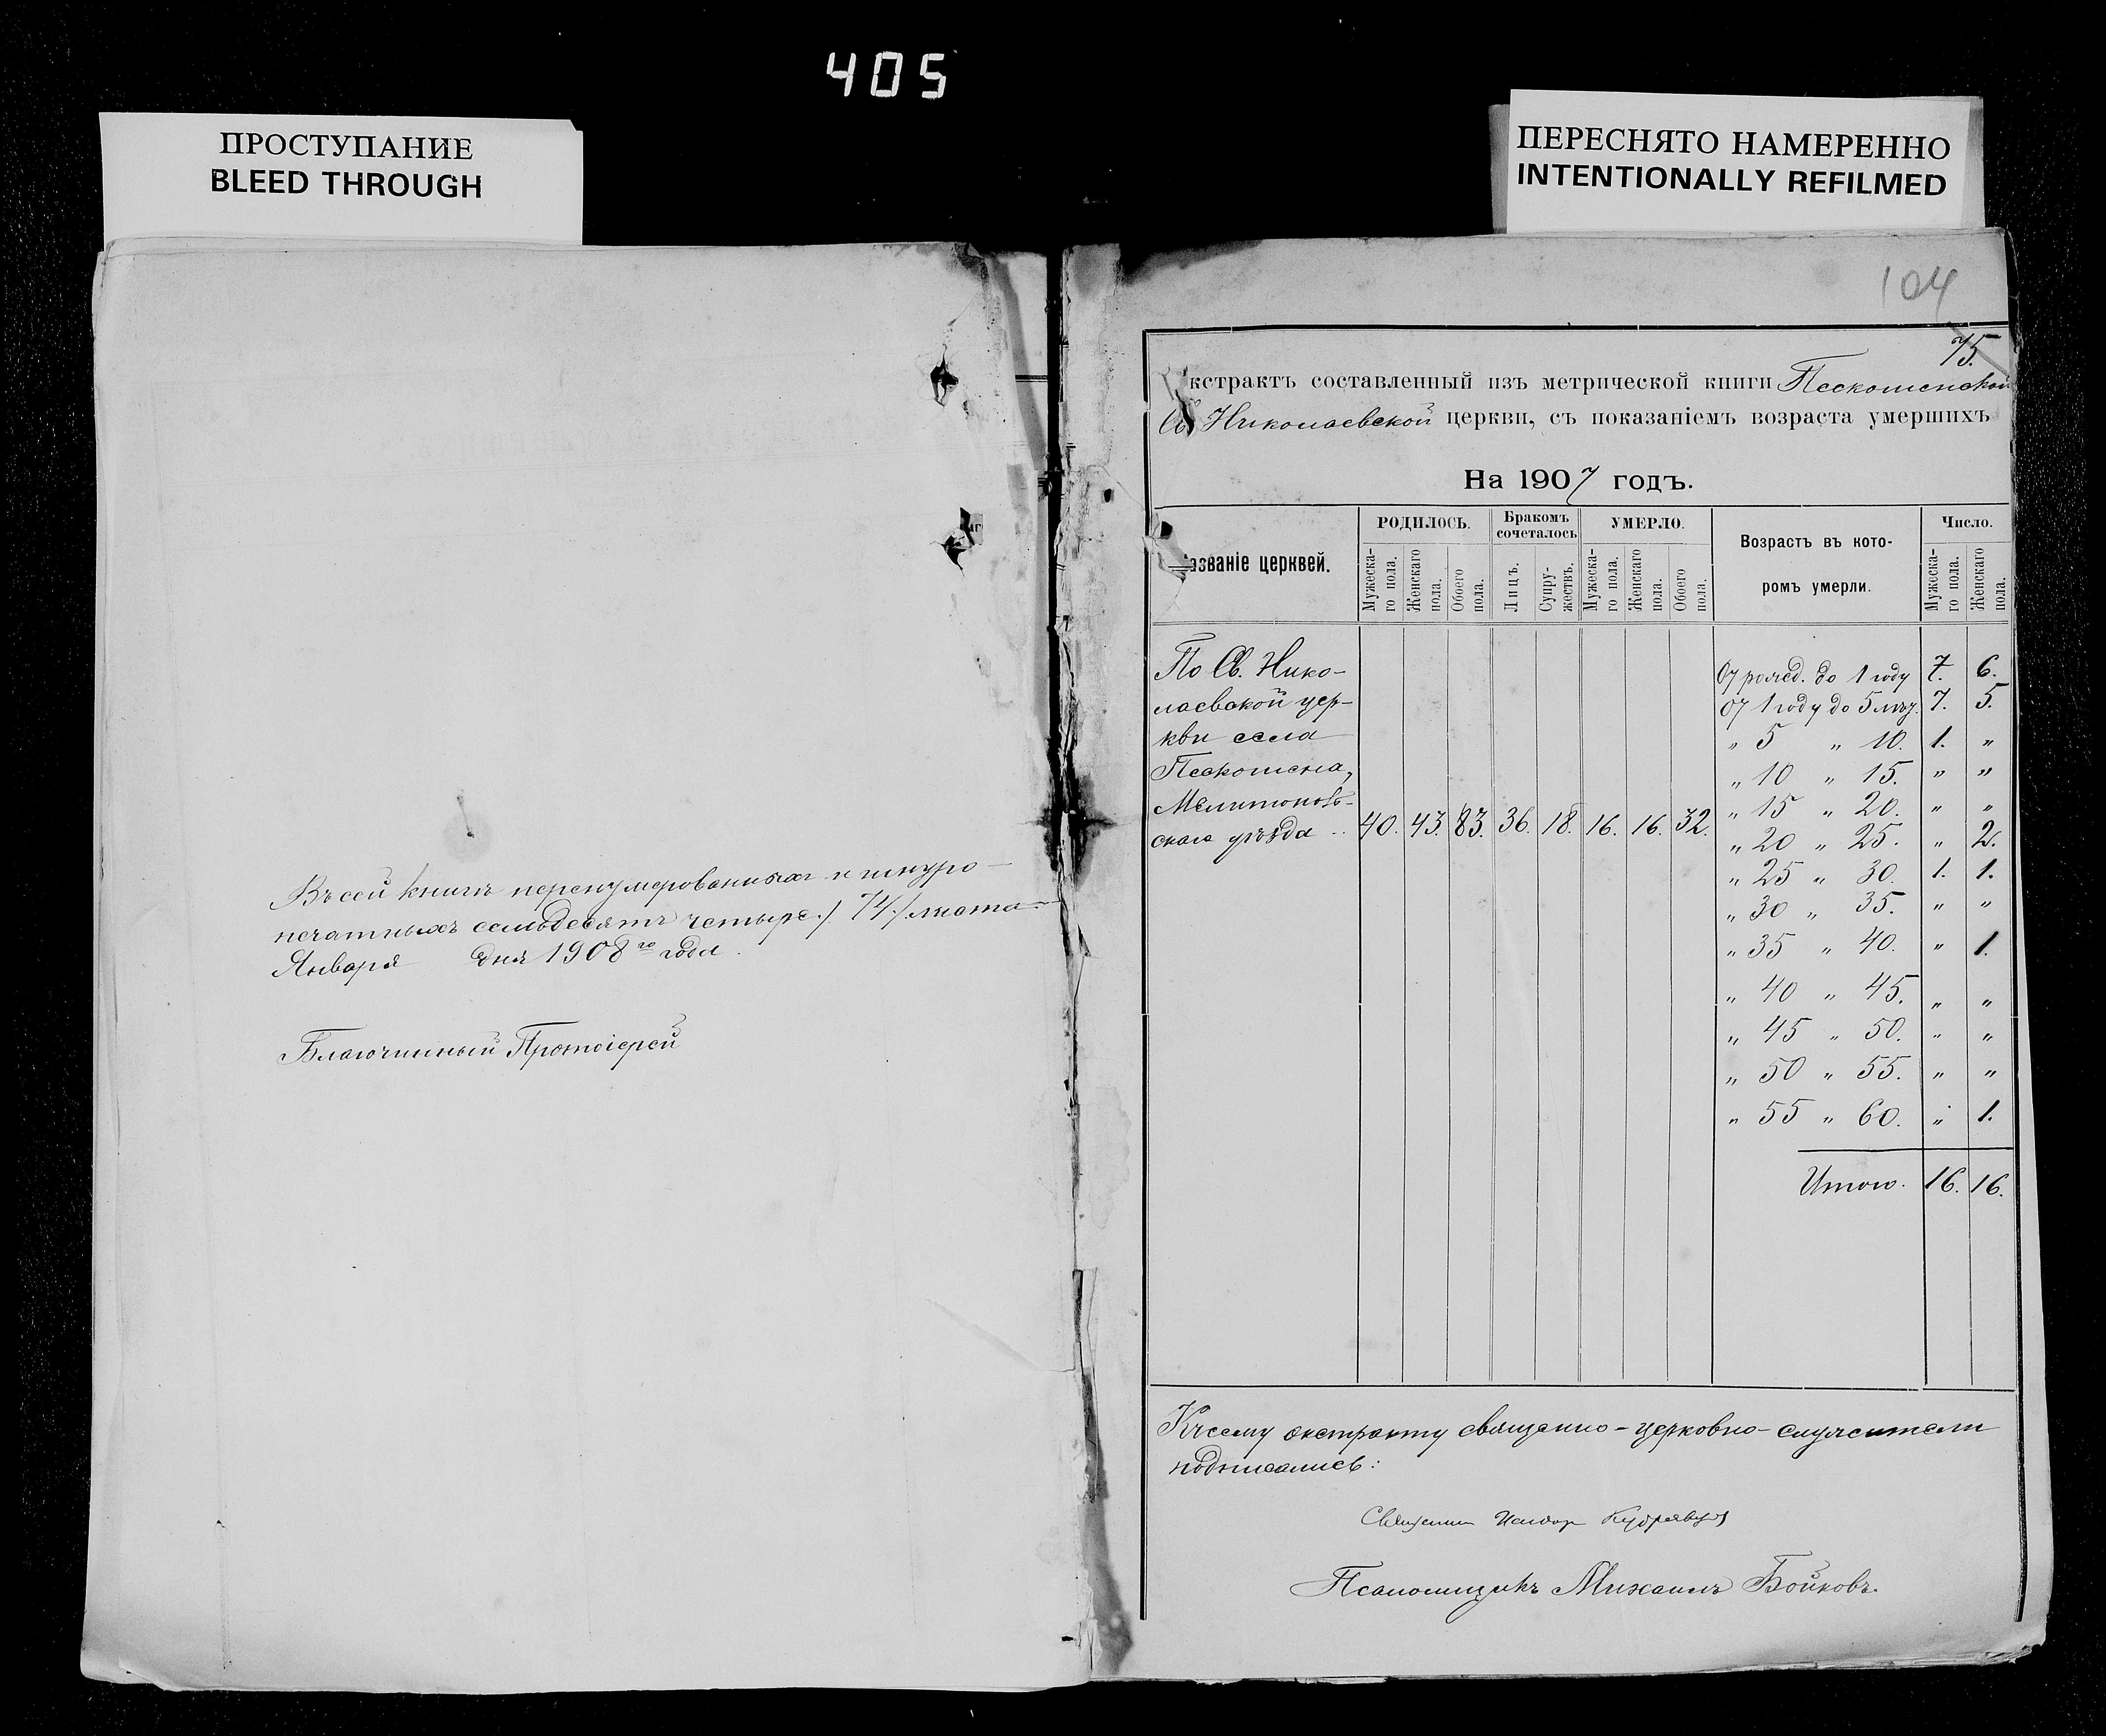 405
ПРОСТУПАНИЕ
BLEED THROUGH
ПЕРЕСНЯТО НАМЕРЕННО
INTENTIONALLY REFILMED
Въ сей книгѣ перенумерованныхъ и шнуро-
печатныхъ семьдесятъ четыре /74/ листа
Января дня 1908го года.
Благочинный Протоіерей
104
75.
кстрактъ составленный изъ метрической книги Пескошенской
Св Николаевской церкви, съ показаніемъ возраста умершихъ
На 1907 годъ.
азваніе церквей.
РОДИЛОСЬ.
Бракомъ сочеталось
УМЕРЛО.
Возрастъ въ кото-
ромъ умерли.
Число.
Мужеска-го пола. Женскаго пола. Обоего пола. Лицъ. Супру-жествъ. Мужеска-го пола. Женскаго пола. Обоего пола. Мужеска-го пола. Женскаго пола.
По Св. Нико-
лаевской цер-
кви села
Пескошена,
Мелитополь-
скаго уѣзда .. 40. 43. 83. 36. 18. 16. 16. 32.
От рожд. до 1 году 7. 6.
От 1 году до 5 лѣт. 7. 5.
„ 5 „ 10. 1. „
„ 10 „ 15. „ „
„ 15 „ 20. „ „
„ 20 „ 25. „ 2.
„ 25 „ 30. 1. 1.
„ 30 „ 35. „ „
„ 35 „ 40. „ 1.
„ 40 „ 45. „ „
„ 45 „ 50. „ „
„ 50 „ 55. „ „
„ 55 „ 60. „ 1.
Итого. 16. 16.
Къ сему экстракту священно-церковно-служители
подписались:
Священник Исидор Кудрявцев
Псаломщикъ Михаилъ Бойковъ.